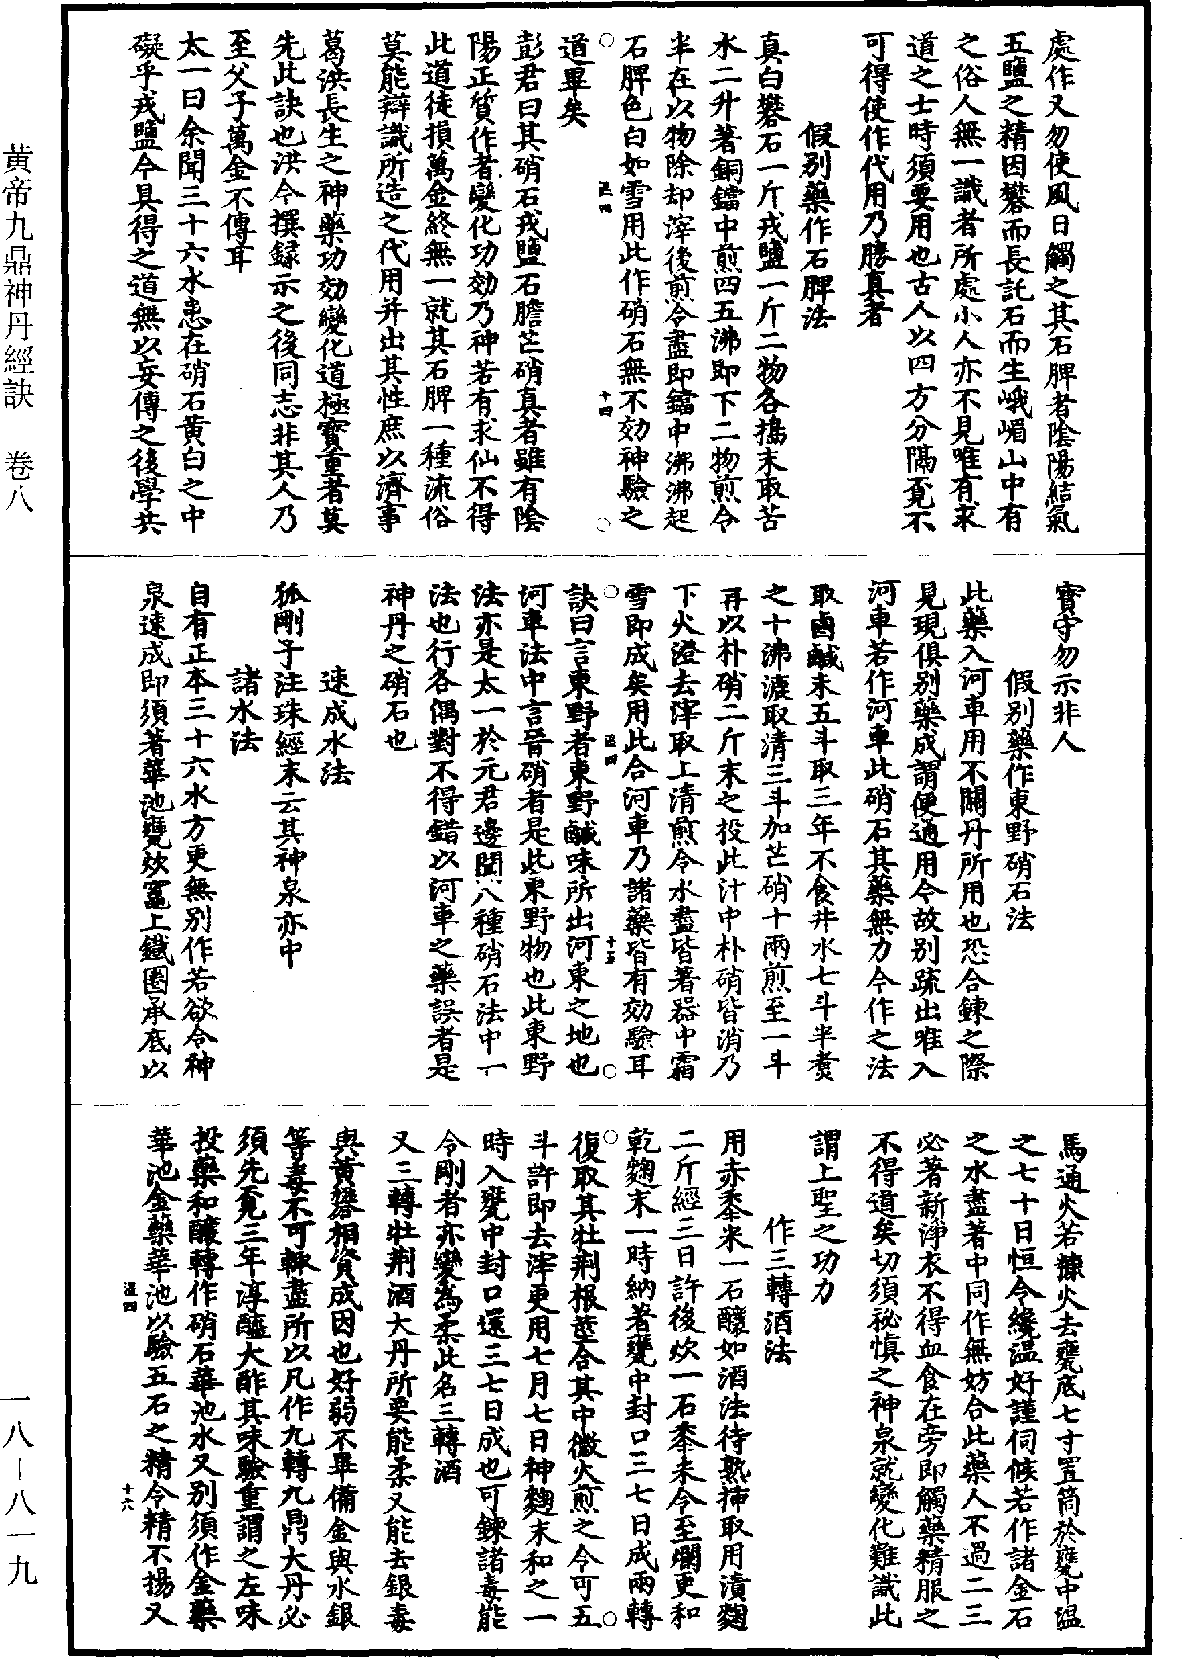 黄帝九鼎神丹經訣　卷八
處作又勿使風日觸之其石脾者陰陽結氣
五鹽之精因礬而長託石而生峨嵋山中有
之俗人無一識者所處小人亦不見唯有求
道之士時須要用也古人以四方分隔覓不
可得使作代用乃勝真者
假別藥作石脾法
真白礬石一斤戎鹽一斤二物各擣末取苦
水二升著銅鐺中煎四五沸即下二物煎令
半在以物除却滓後煎令盡即鐺中沸沸起
石脾色白如雪用此作硝石無不効神驗之
道畢矣
彭君曰其硝石戎鹽石膽芒硝真者雖有陰
陽正質作者變化功効乃神若有求仙不得
此道徒損萬金終無一就其石脾一種流俗
莫能辯識所造之代用并出其性庶以濟事
葛洪長生之神藥功効變化道極寶重者莫
先此訣也洪今撰録示之後同志非其人乃
至父子萬金不傳耳
太一曰余聞三十六水恚在硝石黄白之中
礙乎戎鹽今具得之道無以妄傳之後學共
寶守勿示非人
假別藥作東野硝石法
此藥入河車用不關丹所用也恐合鍊之際
見現俱別藥成謂便通用今故別疏出唯入
河車若作河車此硝石其藥無力今作之法
取鹵鹹末五斗取三年不食井水七斗半煑
之十沸漉取清三斗加芒硝十兩煎至一斗
再以朴硝二斤末之投此汁中朴硝皆消乃
下火澄去滓取上清煎令水盡皆著器中霜
雪即成矣用此合河車乃諸藥皆有効驗耳
訣曰言東野者東野鹹味所出河東之地也
河車法中言晉硝者是此東野物也此東野
法亦是太一於元君邊聞八種硝石法中一
法也行各偶對不得錯以河車之藥誤者是
神丹之硝石也
速成水法
狐剛子注珠經末云其神泉亦中
諸水法
自有正本三十六水方更無別作若欲令神
泉速成即須著華池甕炊竈上鐵圈承底以
馬通火若糠火去甕底七寸置筒於甕中温
之七十日恒令纔温好謹伺候若作諸金石
之水盡著中同作無妨合此藥人不過二三
必著新淨衣不得血食在旁即觸藥精服之
不得道矣切須祕慎之神泉就變化難識此
謂上聖之功力
作三轉酒法
用赤黍米一石釀如酒法待熟押取用漬麴
二斤經三日許後炊一石黍米令至爛更和
乾麴末一時納著甕中封口三七日成兩轉
復取其牡荆根莖合其中微火煎之令可五
斗許即去滓更用七月七日神麴末和之一
時入甕中封口還三七日成也可鍊諸毒能
令剛者亦變為柔此名三轉酒
又三轉牡荆酒大丹所要能柔又能去銀毒
與黄礬相資成因也好弱不畢備金與水銀
等毒不可輙盡所以凡作九轉九鼎大丹必
須先覓三年淳醯大酢其味驗重謂之左味
投藥和釀轉作硝石華池水又別須作金藥
華池金藥華池以驗五石之精令精不揚又
一八—八一九